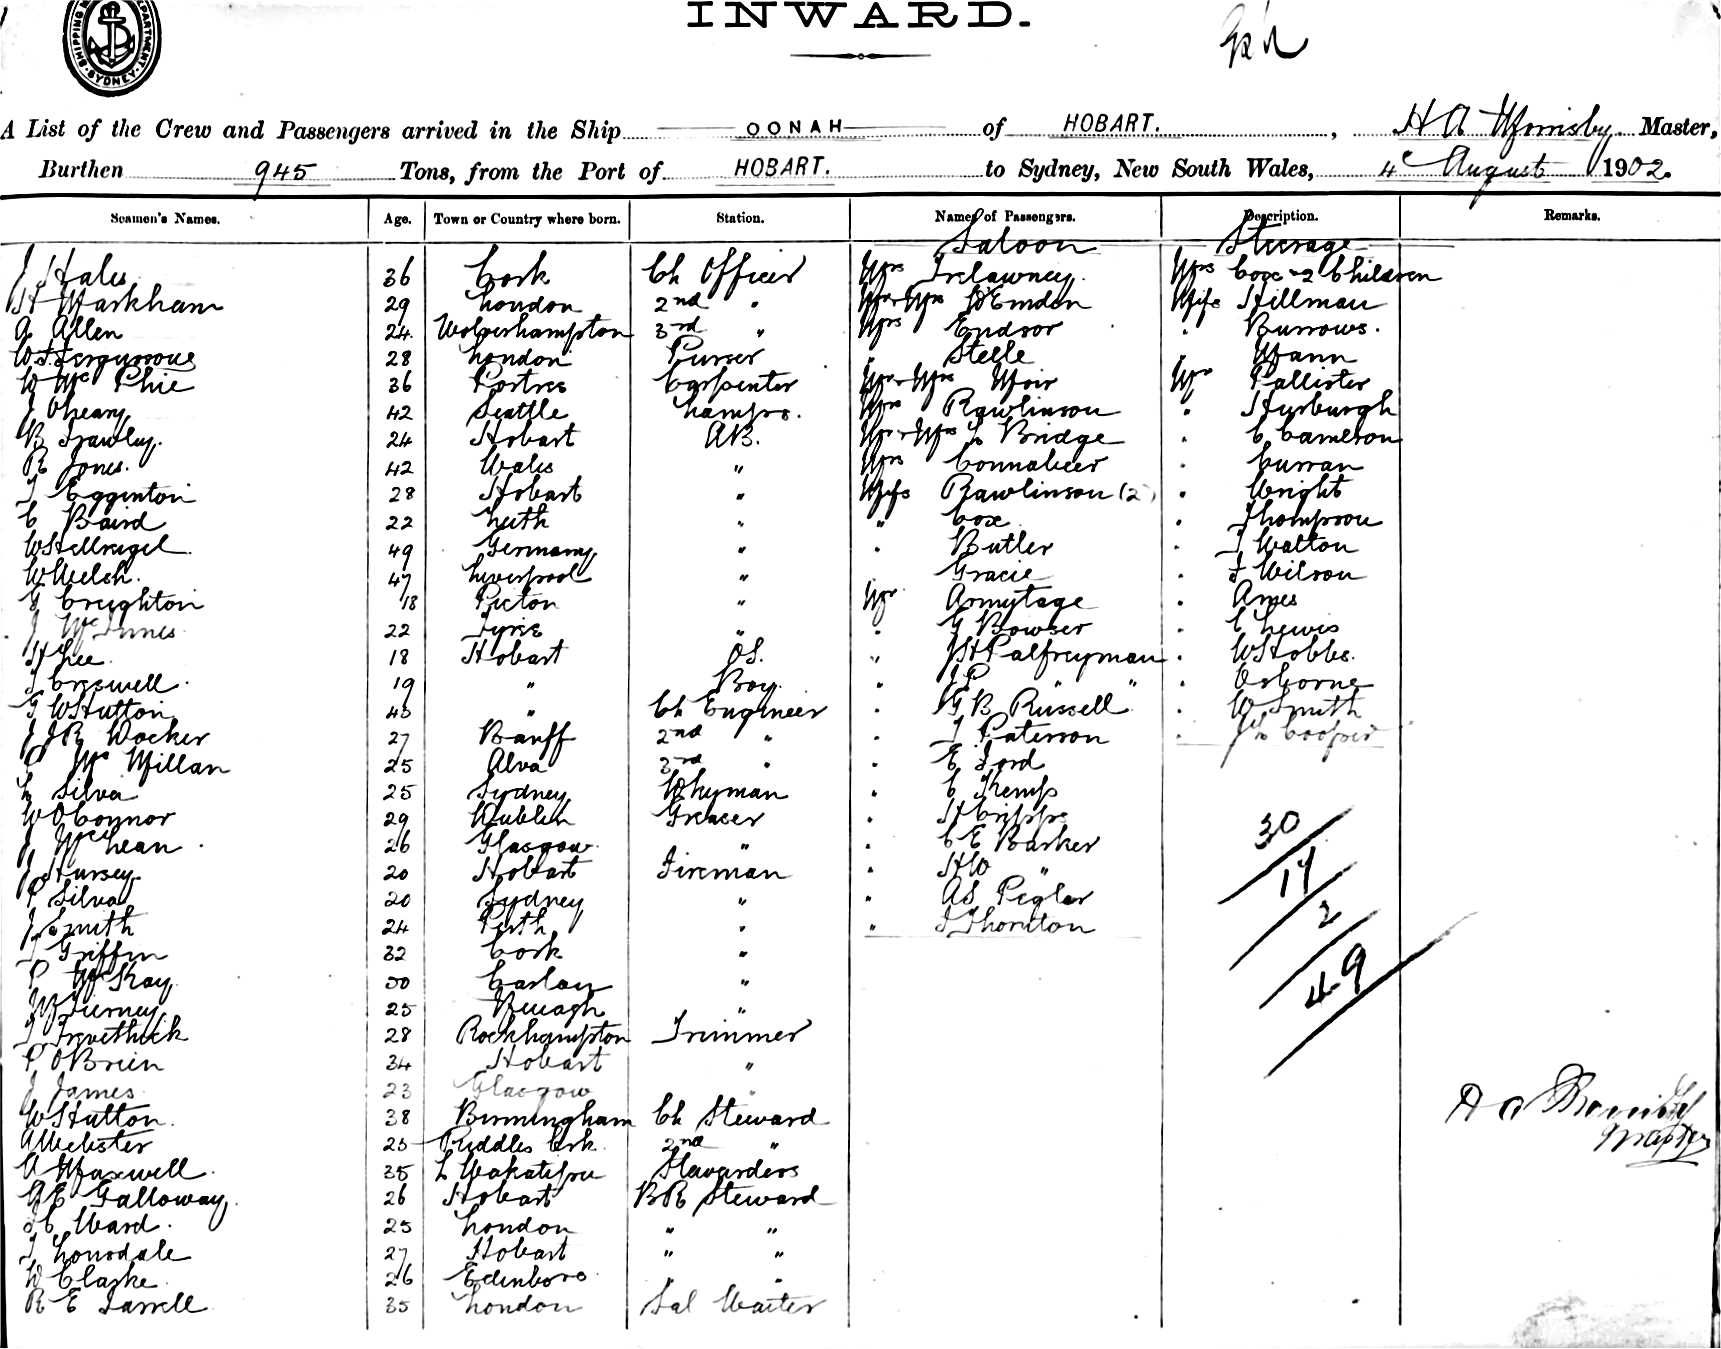 INWARD.
SHIPPING DEPARTMENT SYDNEY
A List of the Crew and Passengers arrived in the Ship OONAH of HOBART. , H A Master,
Burthen 945 Tons, from the Port of HOBART. to Sydney, New South Wales, 4 August 1902.
Seamen's Names. Age. Town or Country where born. Station. Names of Passengers. Description. Remarks.
Saloon Steerage
J Hales 36 Cork Ch Officer Mrs Trelawney Mrs Coxe 2 Children
H Markham 29 London 2nd " Mr Mrs D'Emden Misses Hillman
G Allen 24 Wolverhampton 3rd " Mrs Endsor " Burrows.
W F Fergussone 28 London Purser " Steele Mann
D McPhie 36 Carpenter Mr Mrs Moir Mr Pallister
J Cheary 42 Seattle Lamps. Mrs Rawlinson " Hysburgh
B Frawley 24 Hobart AB. Mr Mrs Bridge " C Cameron
R Jones. 42 Wales " Mrs Connabeer " Curran
T Egginton 28 Hobart " Misses Rawlinson (2) " Wright
C Baird 22 Leith " " Coxe " Thompson
W 49 Germany " " Butler " T Walton
W Welch. 47 Liverpool " " Gracie " F Wilson
G Creighton 18 Picton " Mr Armytage " Ames
J McInnes 22 " " G Bowser " C Lewis
H Lee. 18 Hobart OS. " J H Palfreyman " W Hobbs.
T Creswell 19 " Boy. " J P " " " Osborne
G W Hutton 43 " Ch Engineer " G B Russell " W Smith
J J R Wocker 27 Banff 2nd " " J Paterson " Cooper
P McMillan 25 Alva 3rd " " E Ford
L Silva 25 Sydney Whyman " C Kemp
W O'Connor 29 Dublin Greaser " H Cripps
J McLean 26 Glasgow " " C E Barker 30
J Hursey 20 Hobart Fireman " H W " 17
P Silva 20 Sydney " " A S Pegler 2
J Smith 24 Perth " " J Thornton
T Griffin 32 Cork " 49
P McKay 30 "
Tierney 25 "
T Trevethick 28 Rockhampton Trimmer
P O'Brien 34 Hobart "
J James 23 Glasgow "
W Hutton. 38 Birmingham Ch Steward
A Webster 25 2nd "
A Maxwell. 35 L Wakatipu Stewardess
G E Galloway. 26 Hobart BR Steward
J C Ward. 25 London " "
T Lonsdale 27 Hobart " "
W Clarke. 26 Edinboro " "
R E Farrell 35 London Sal Waiter
Master